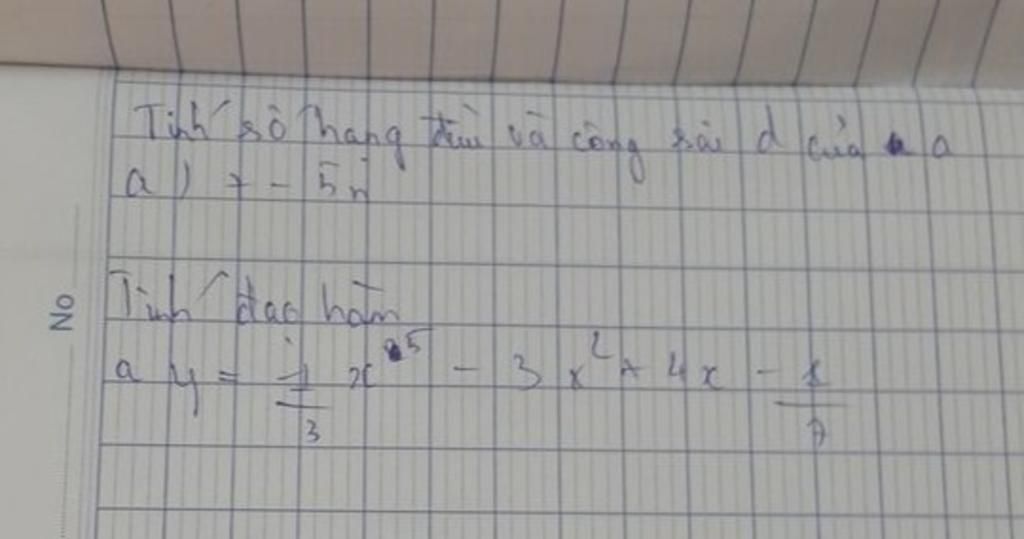 Tính số hạng đầu và công sai d của a
a) 7 - 5n
Tính đạo hàm
a y = 1/3 x^5 - 3x^2 + 4x -
No